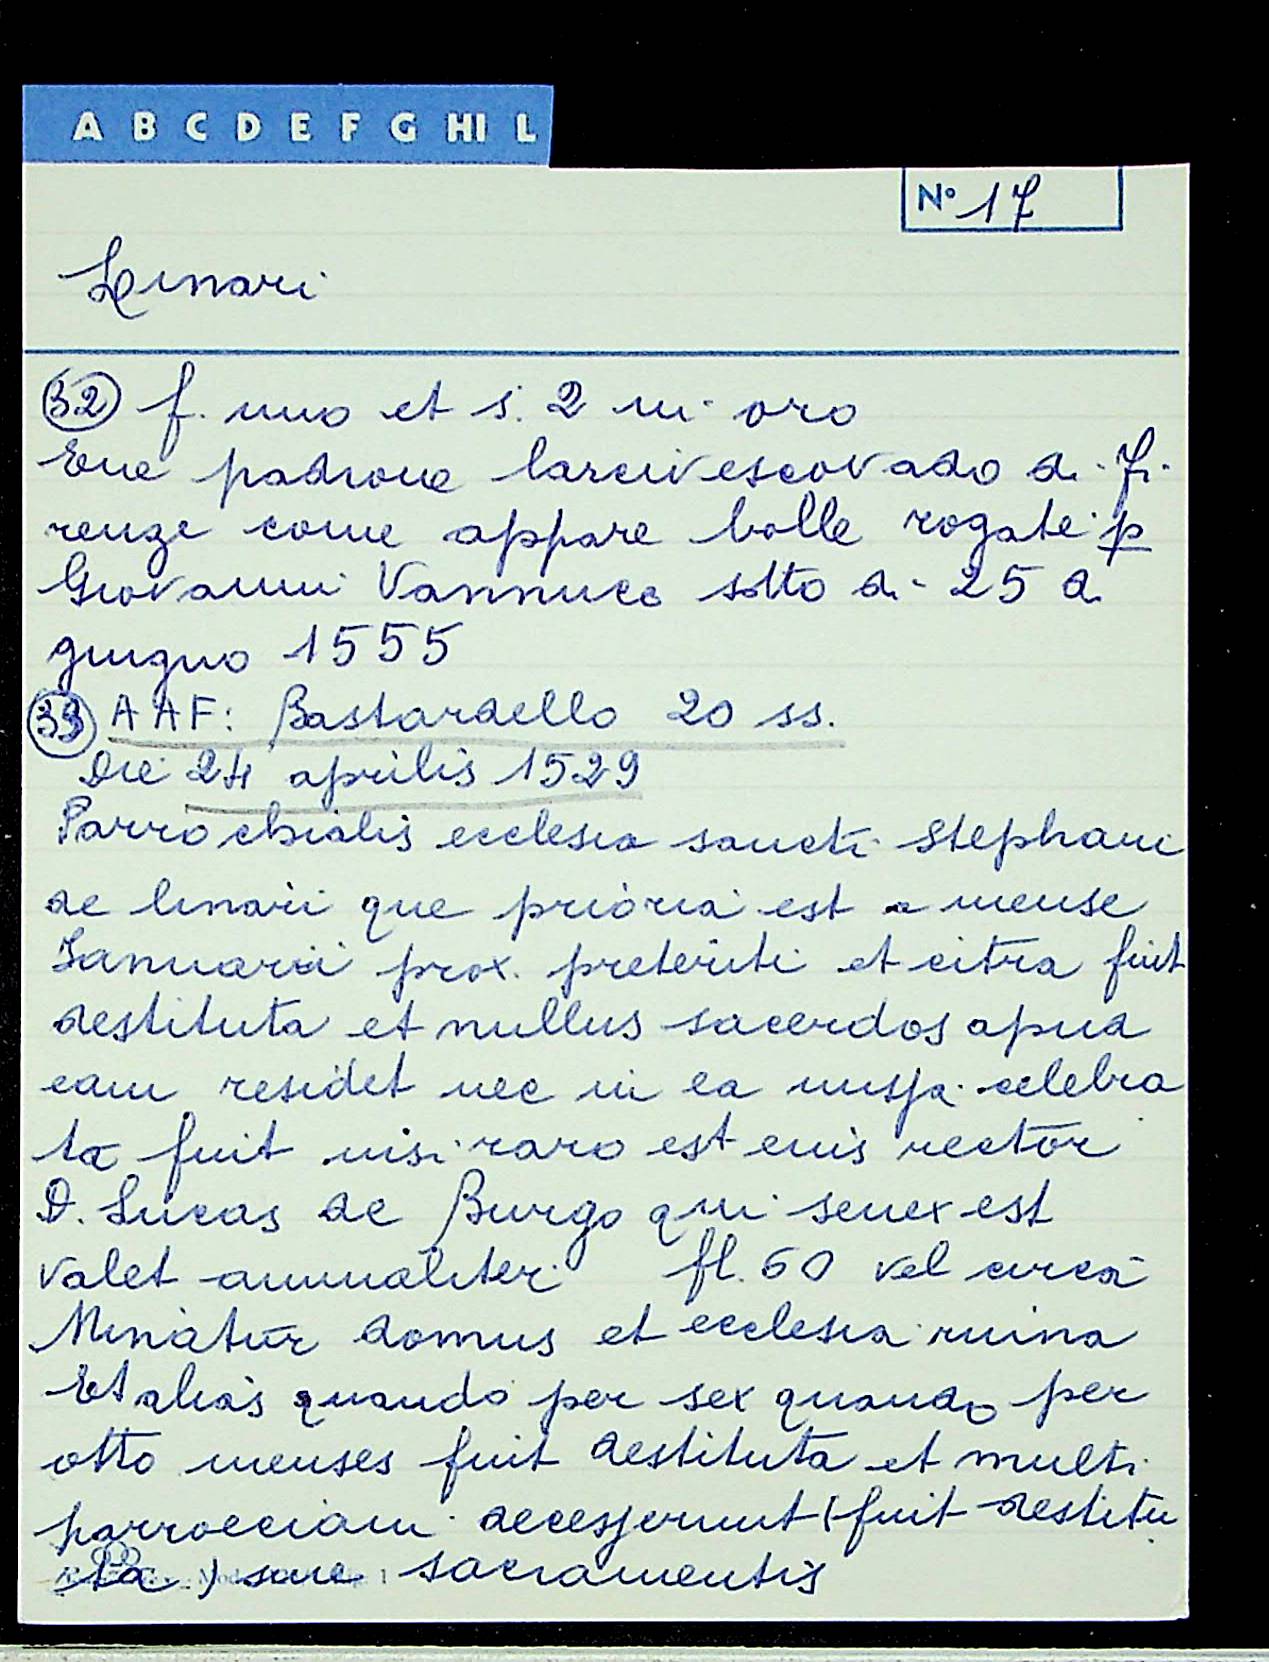 A B C D E F G HI L
N° 17
Linari
32 f. uno et s. 2 in oro
Ene padrone larcivescovado di Fi
renze come appare bolle rogate p
Giovanni Vannucci sotto di 25 di
giugno 1555
33 AAF: Bastardello 20 ss.
Die 24 aprilis 1529
Parrochialis ecclesia sancti Stephani
de linari que prioria est a mense
Januarii prox. preteriti et citra fuit
destituta et nullus sacerdos apud
eam residet nec in ea missa celebra
ta fuit nisi raro est enis rector
D. Lucas de Burgo qui senex est
valet annualiter fl. 60 vel circa
Minatur domus et ecclesia ruina
Et alias quando per sex quando per
otto menses fuit destituta et multi
parrocciani decesserunt (fuit destitu
ta) sine sacramentis